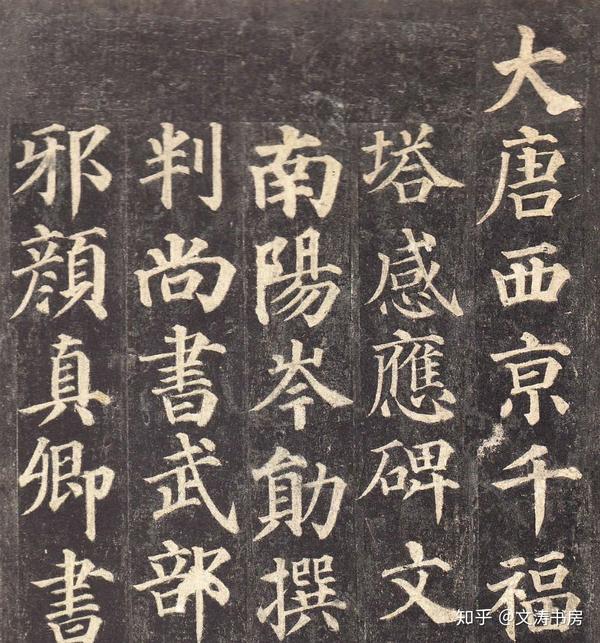 大唐西京千福
塔感應碑文
南陽岑勛撰
判尚書武部
邪顏真卿書
知乎 @文涛书房